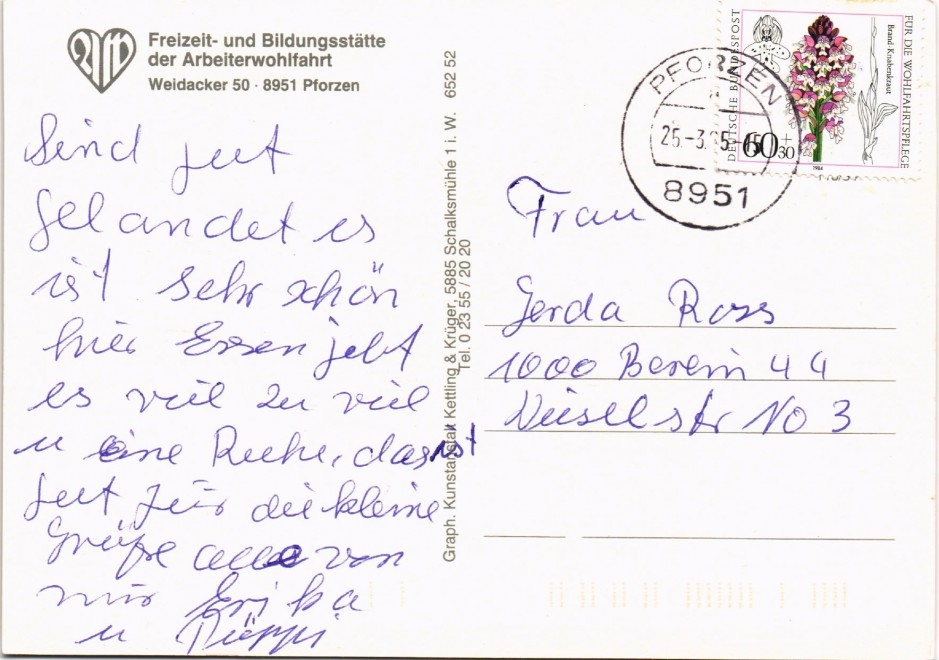 Freizeit- und Bildungsstätte
der Arbeiterwohlfahrt
Weidacker 50 · 8951 Pforzen
Sind jut
gelandet es
ist sehr schön
hier Essen jebt
es viel zu viel
u eine Ruhe, das ist
jut für die kleine
Grüße alle von
mir Erika
u
Graph. Kunstanstalt Kettling & Krüger, 5885 Schalksmühle 1 i. W. 652 52
Tel. 0 23 55 / 20 20
PFORZEN
25.-3. 5-15
8951
DEUTSCHE BUNDESPOST
60+30
Brand-Knabenkraut
FÜR DIE WOHLFAHRTSPFLEGE
1984
Frau
Gerda Ross
1000 Berlin 44
No 3